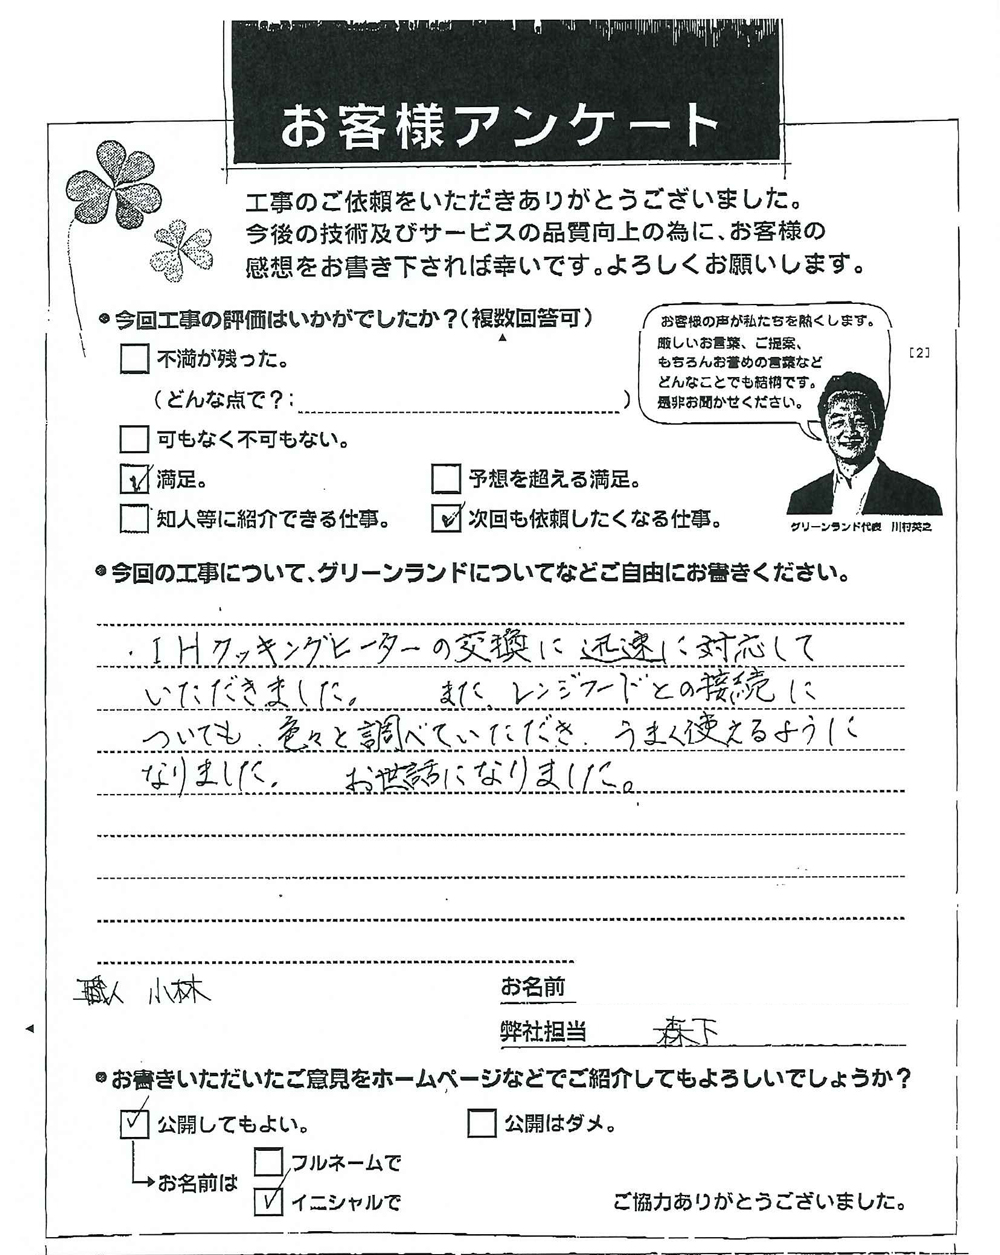 お客様アンケート
工事のご依頼をいただきありがとうございました。
今後の技術及びサービスの品質向上の為に、お客様の
感想をお書き下されば幸いです。よろしくお願いします。
●今回工事の評価はいかがでしたか?(複数回答可)
不満が残った。
(どんな点で?: )
可もなく不可もない。
満足。
予想を超える満足。
知人等に紹介できる仕事。
次回も依頼したくなる仕事。
お客様の声が私たちを熱くします。
厳しいお言葉、ご提案、
もちろんお誉めの言葉など
どんなことでも結構です。
是非お聞かせください。
[2]
グリーンランド代表 川村英之
●今回の工事について、グリーンランドについてなどご自由にお書きください。
・IHクッキングヒーターの交換に迅速に対応して
いただきました。 また、レンジフードとの接続に
ついても、色々と調べていただき、うまく使えるように
なりました。 お世話になりました。
職人 小林
お名前
弊社担当 森下
●お書きいただいたご意見をホームページなどでご紹介してもよろしいでしょうか?
公開してもよい。
公開はダメ。
お名前は
フルネームで
イニシャルで
ご協力ありがとうございました。